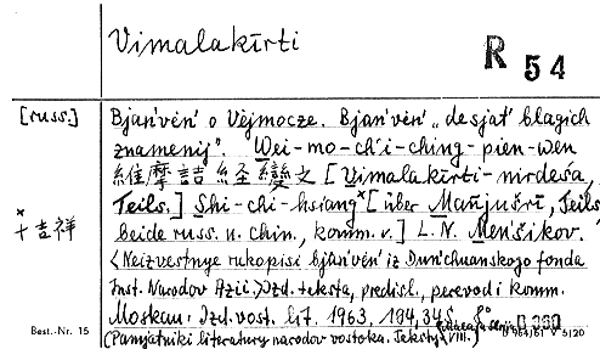 Vimalakīrti
R 54
[russ.]
Bjan'vėn' o Vėjmocze. Bjan'vėn' „desjat' blagich
znamenij". Wei-mo-ch'i-ching-pien-wen
維摩詰経變文 [Vimalakīrti-nirdeśa,
Teils.] Shi-chi-hsiang× [über Mañjuśrī, Teils
× 十吉祥
beide russ. u. chin., komm. v.] L.N. Men'šikov.
<Neizvestnye rukopisi bjan'vėn' iz Dun'chuanskogo fonda
Inst. Narodov Azii.> Izd. teksta, predisl., perevod i komm.
Moskau: Izd. vost. lit. 1963. 194, 345 S. 8°
Best.-Nr. 15
(Pamjatniki literatury narodov vostoka. Teksty. VIII.)